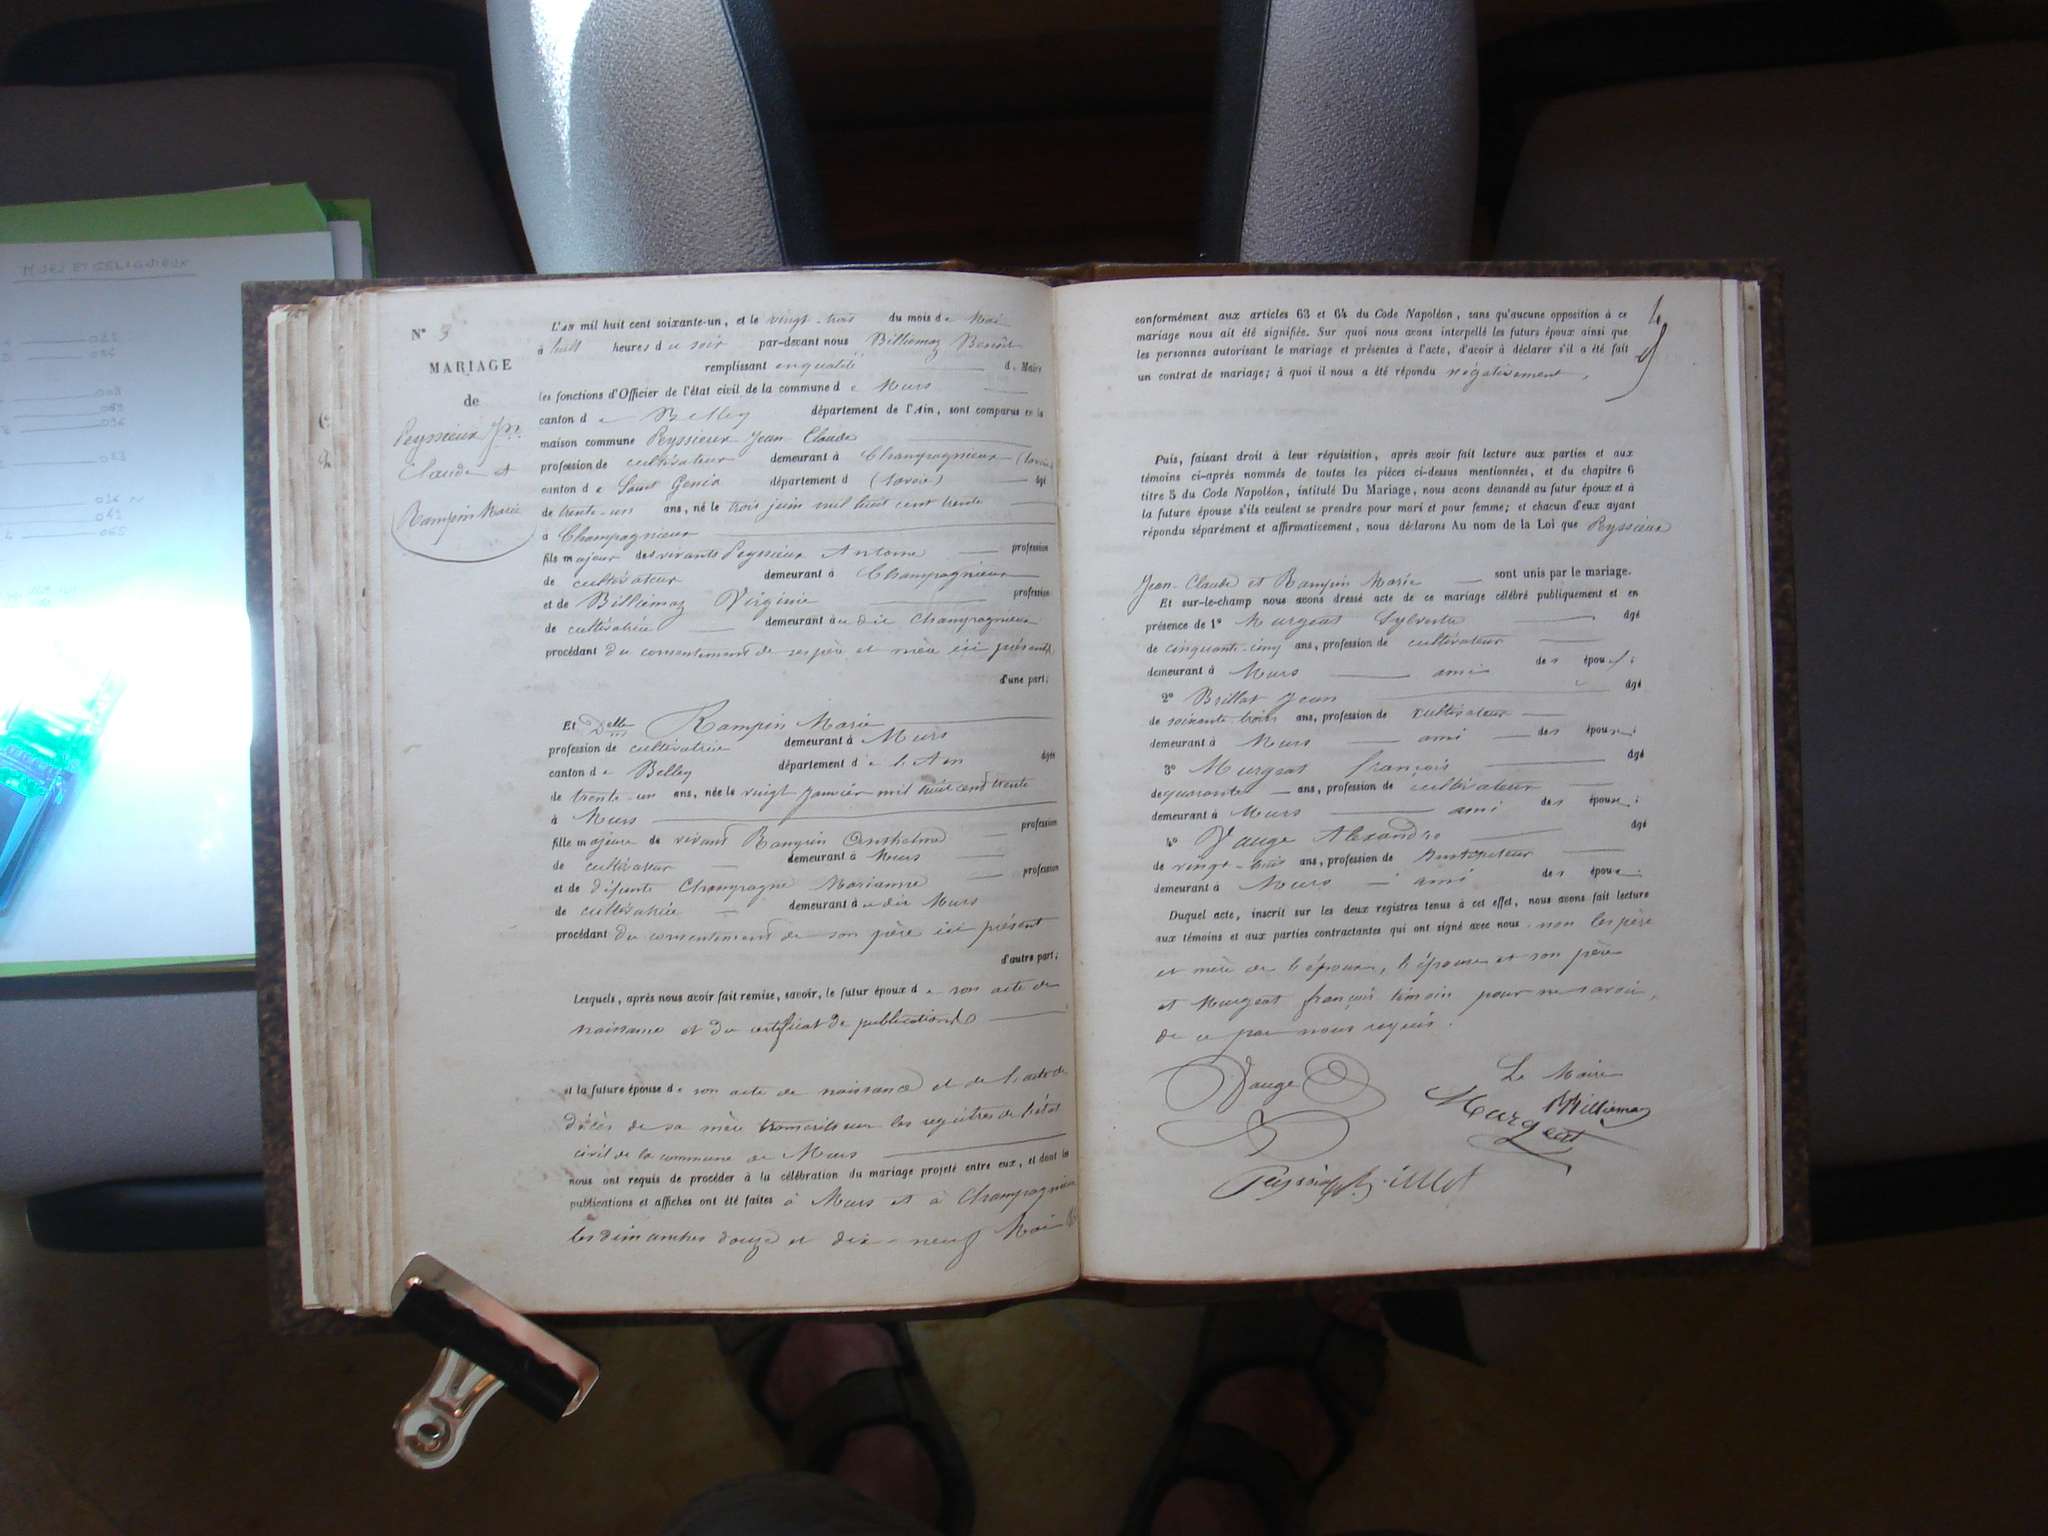 MURS ET GELIGNIEUX
N° 3
MARIAGE
de
Peyssieux Jn
Claude et
Rampin Marie
L'an mil huit cent soixante-un, et le vingt-trois du mois de Mai
à huit heures du soir par-devant nous Billiemaz Benoit
remplissant en qualité de Maire
les fonctions d'Officier de l'état civil de la commune de Murs
canton de Belley département de l'Ain, sont comparus en la
maison commune Peyssieux Jean Claude
profession de cultivateur demeurant à Champagnieux (Savoie)
canton de Saint Genix département d (Savoie) âgé
de trente-un ans, né le trois juin mil huit cent trente
à Champagnieux
fils majeur des vivants Peyssieux Antoine profession
de cultivateur demeurant à Champagnieux
et de Billiemaz Virginie profession
de cultivatrice demeurant au dit Champagnieux
procédant du consentement de ses père et mère ici présents
d'une part;
Et Delle Rampin Marie
profession de cultivatrice demeurant à Murs
canton de Belley département de l'Ain âgée
de trente-un ans, née le vingt janvier mil huit cent trente
à Murs
fille majeure de vivant Rampin Anthelme profession
de cultivateur demeurant à Murs
et de défunte Champagne Marianne profession
de cultivatrice demeurant au dit Murs
procédant du consentement de son père ici présent
d'autre part;
Lesquels, après nous avoir fait remise, savoir, le futur époux de son acte de
naissance et du certificat de publication
et la future épouse de son acte de naissance et de l'acte de
décès de sa mère transcrits sur les registres de l'état
civil de la commune de Murs
nous ont requis de procéder à la célébration du mariage projeté entre eux, et dont les
publications et affiches ont été faites à Murs et à Champagnieux
les dimanches douze et dix-neuf Mai
conformément aux articles 63 et 64 du Code Napoléon, sans qu'aucune opposition à ce
mariage nous ait été signifiée. Sur quoi nous avons interpellé les futurs époux ainsi que
les personnes autorisant le mariage et présentes à l'acte, d'avoir à déclarer s'il a été fait
un contrat de mariage; à quoi il nous a été répondu négativement.
Puis, faisant droit à leur réquisition, après avoir fait lecture aux parties et aux
témoins ci-après nommés de toutes les pièces ci-dessus mentionnées, et du chapitre 6
titre 5 du Code Napoléon, intitulé Du Mariage, nous avons demandé au futur époux et à
la future épouse s'ils veulent se prendre pour mari et pour femme; et chacun d'eux ayant
répondu séparément et affirmativement, nous déclarons Au nom de la Loi que Peyssieux
Jean-Claude et Rampin Marie sont unis par le mariage.
Et sur-le-champ nous avons dressé acte de ce mariage célébré publiquement et en
présence de 1° Murgeat Sylvestre âgé
de cinquante-cinq ans, profession de cultivateur
demeurant à Murs ami des époux;
2° Brillat Jean âgé
de soixante-trois ans, profession de cultivateur
demeurant à Murs ami des époux;
3° Murgeat françois âgé
de quarante ans, profession de cultivateur
demeurant à Murs ami des époux;
4° Dauge Alexandre âgé
de vingt-trois ans, profession de Instituteur
demeurant à Murs ami des époux;
Duquel acte, inscrit sur les deux registres tenus à cet effet, nous avons fait lecture
aux témoins et aux parties contractantes qui ont signé avec nous. non les père
et mère de l'époux, l'épouse et son père
et Murgeat françois témoin pour ne savoir,
de ce par nous requis.
Dauge
Le Maire
Billiemaz
Murgeat